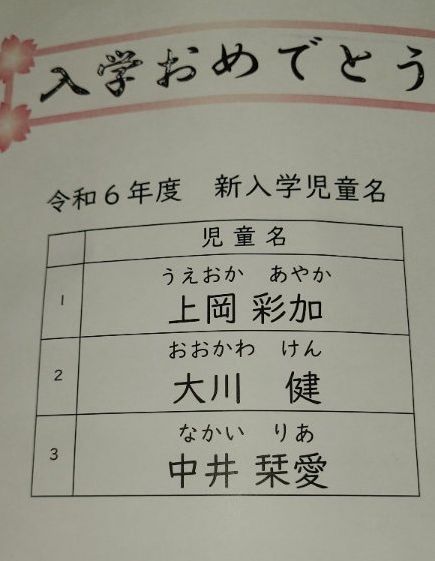 入学おめでとう
令和6年度 新入学児童名
児童名
うえおか あやか
1 上岡 彩加
おおかわ けん
2 大川 健
なかい りあ
3 中井 栞愛